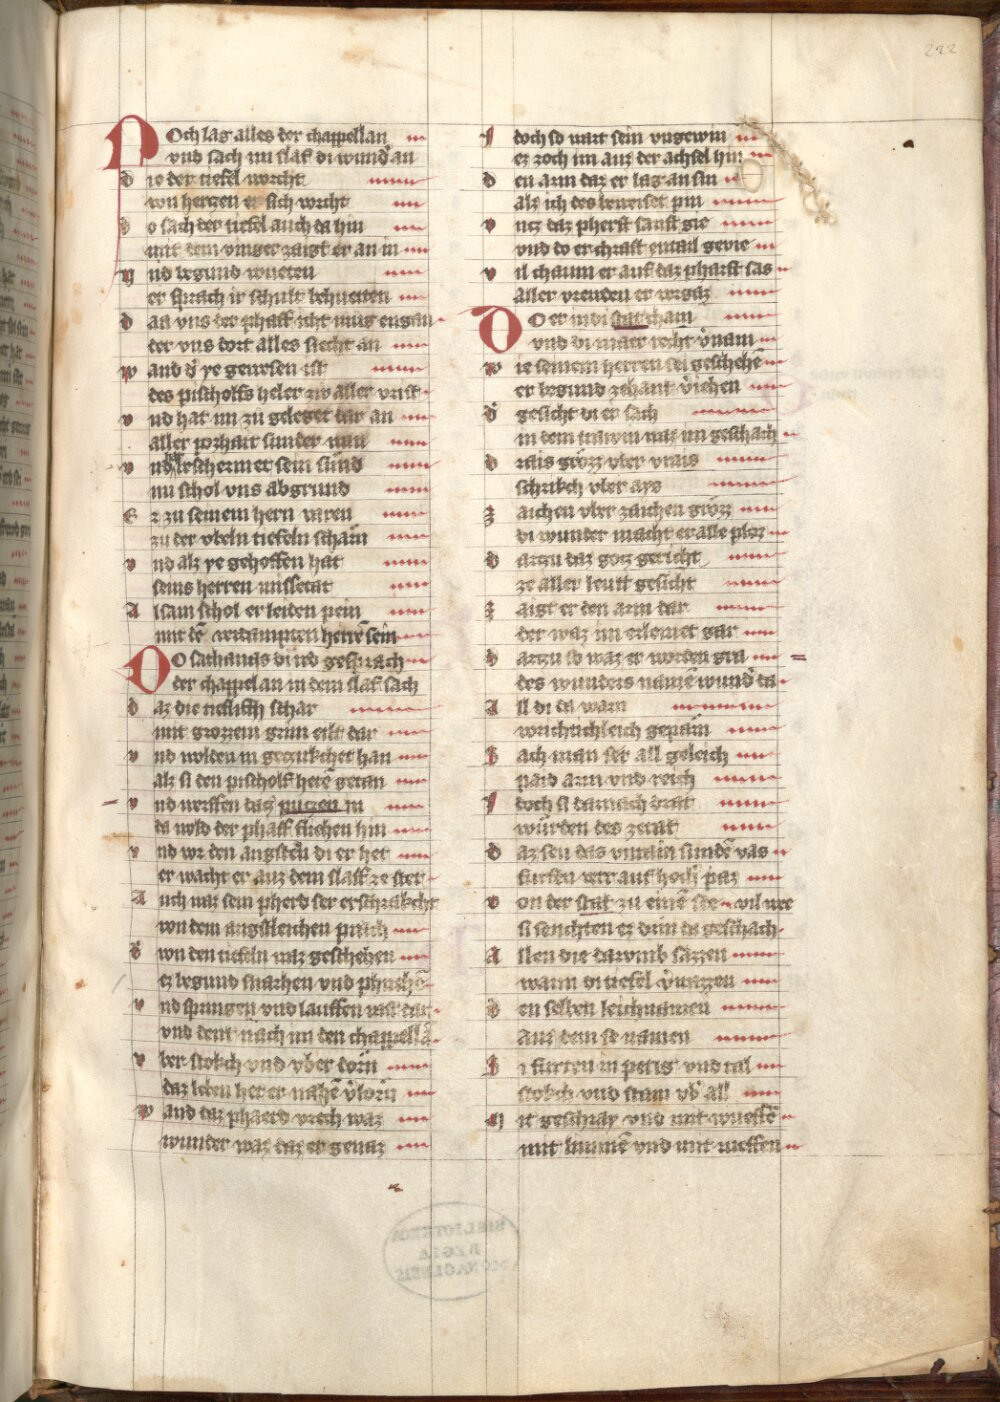 222
Noch lag alles der chappellan
vnd sach im slaf di wund an
die der tiefel vorcht
von hertzen er sich worcht
do sach der tiefel auch da hin
mit dem vinger zaigt er an in
vnd begund wueten
er sprach ir schult behueten
daz vns der phaff icht mug engan
der vns dort alles siecht an
wand d ye gewesen ist
des pischolfs heler zw aller vrist
vnd hat im zu geleget dar an
aller pozhait sunder wan
vnd beschermet sein sund
nu schol vns abgrund
Er zu seinem hern varen
zu der vbeln tiefeln scharn
vnd alz ye geholfen hat
seins herren missetat
Alsam schol er leiden pein
mit dē verdampten herrē sein
DO sathanas di red gesprach
der chappelan in dem slaf sach
daz die tieflisch schar
mit grozzem grim eilt dar
vnd wolden in gezukchet han
alz si den pischolf hetē getan
vnd werffen daz putzen in
da wold der phaff fliehen hin
vnd vor den angsten di er het
er wacht er auz dem slaff ze stet
Auch waz sein pherd ser erschrakcht
von dem angstleichen prach
von den tiefeln waz geschehen
ez begund snarhen vnd phnehē
vnd springen vnd lauffen vast dar
vnd dent nach im den chappellā
vber stokch vnd vber dorn
daz leben het er nahē vlorn
wand daz phaerd vrech waz
wunder waz daz er genaz
Idoch so wart sein vngewin
ez zoch im auz der achsel hin
den arm daz er lag an sin
alz ich des beweiset pin
vntz daz pherft sanft gie
vnd do er chraft enuail gevie
vil chaum er auf daz pharft sas
aller vreuden er vergaz
DO er in di stat cham
vnd di maer recht vnam
wie seinem herren sei geschehē
er begund zehant viehen
d gesicht di er sach
in dem traum waz im geschach
d rais grozz vber vrais
schrikch vber ays
zaichen vber zaichen grozz
di wunder macht er alle ploz
dartzu daz gotz gericht
ze aller leutt gesicht
zaigt er den arm dar
der waz im erlemet gar
dartzu so waz er worden gra
des wunders namē wund da
All di da warn
vorichtichleich geparn
Sach man ser all geleich
paid arm vnd reich
Idoch si darnach drat
wurden des zerat
Daz seu das vnrain sundē vas
furten verr auf hoch paz
von der stat zu einē see vil wee
si senchten ez drin da geschach
Allen die darvmb sazzen
wann di tiefel vmazzen
den selben leichnamen
auz dem se namen
Si furten in perig vnd tal
stokch vnd stain vb all
Mit geschray vnd mit wueffē
mit limmē vnd mit rueffen
BIBLIOTHECA
REGIA
MONACENSIS